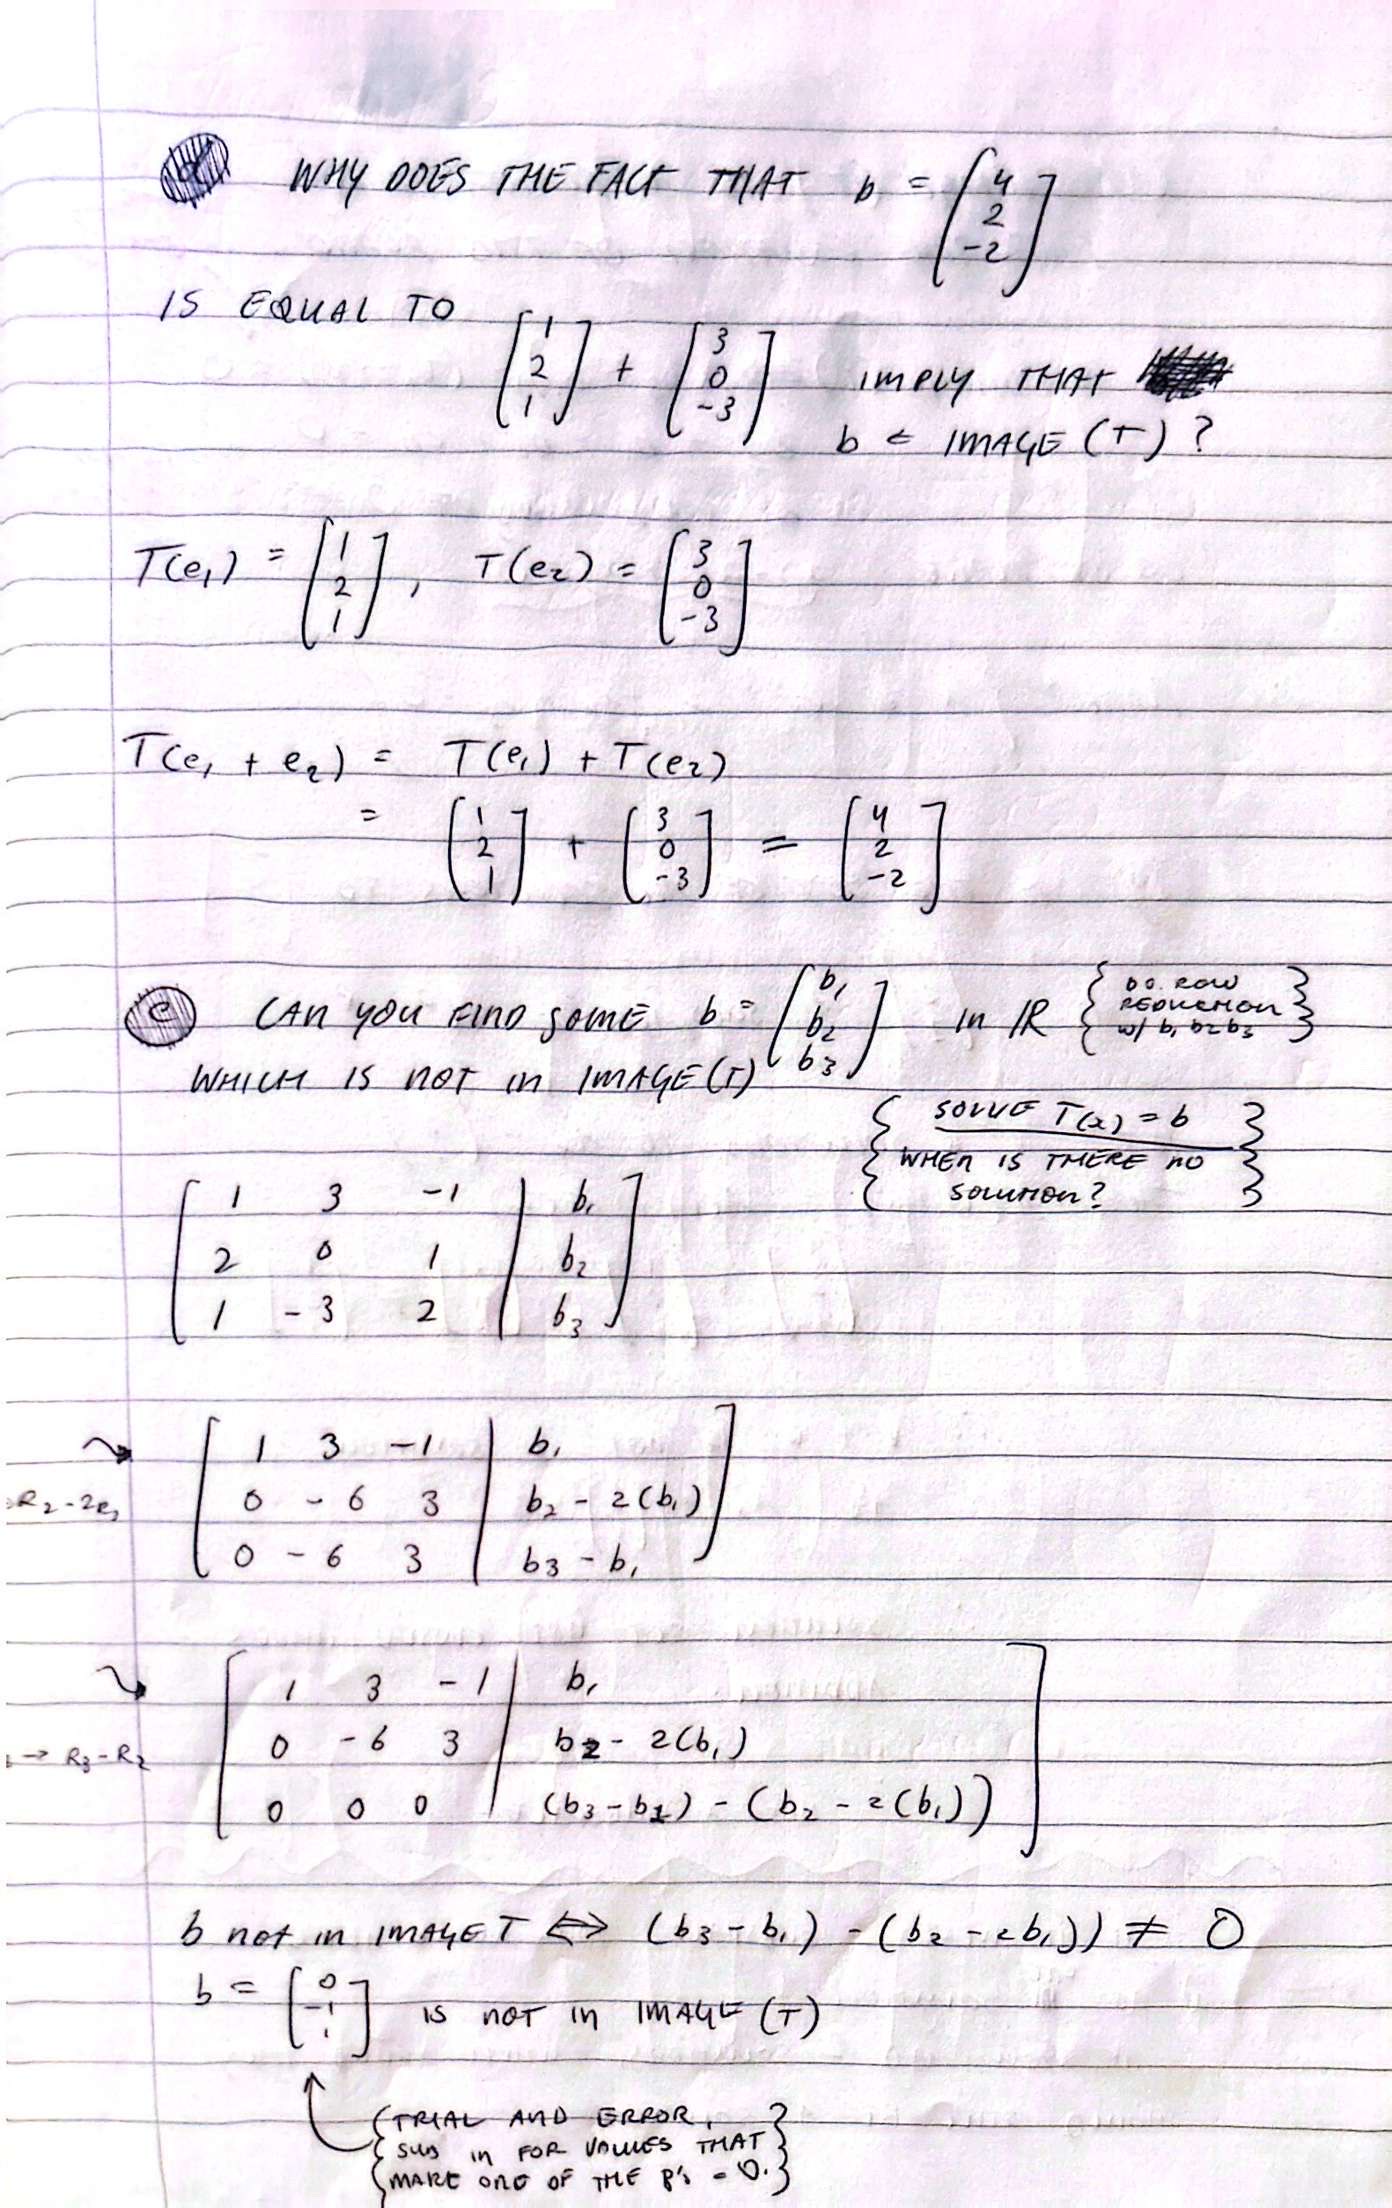 WHY DOES THE FACT THAT b = [4 2 -2]
IS EQUAL TO [1 2 1] + [3 0 -3] IMPLY THAT
b ∈ IMAGE (T) ?
T(e₁) = [1 2 1] , T(e₂) = [3 0 -3]
T(e₁ + e₂) = T(e₁) + T(e₂)
= [1 2 1] + [3 0 -3] = [4 2 -2]
(C) CAN YOU FIND SOME b = [b₁ b₂ b₃] in ℝ {DO. ROW REDUCTION w/ b₁ b₂ b₃}
WHICH IS NOT IN IMAGE(T)
{SOLVE T(x) = b
WHEN IS THERE NO
SOLUTION?}
[1 3 -1 | b₁
2 0 1 | b₂
1 -3 2 | b₃]
[1 3 -1 | b₁
R₂ - 2R₁ 0 -6 3 | b₂ - 2(b₁)
0 -6 3 | b₃ - b₁]
[1 3 -1 | b₁
0 -6 3 | b₂ - 2(b₁)
→ R₃ - R₂
0 0 0 | (b₃ - b₁) - (b₂ - 2(b₁))]
b not in IMAGE T ⟺ (b₃ - b₁) - (b₂ - 2b₁)) ≠ 0
b = [0 -1 1] IS NOT IN IMAGE (T)
{TRIAL AND ERROR,
SUB IN FOR VALUES THAT
MAKE ONE OF THE B's = 0.}